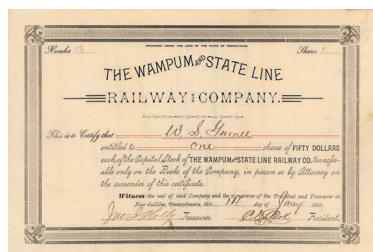 ORGANIZED UNDER THE LAWS OF THE STATE OF PENNSYLVANIA.
Number 13 Shares 1
THE WAMPUM AND STATE LINE
RAILWAY COMPANY.
This is to Certify that W. S. Gurnee
entitled to one shares of FIFTY DOLLARS
each of the Capital Stock of THE WAMPUM AND STATE LINE RAILWAY CO. transfer-
able only on the Books of the Company, in person or by Attorney on
the surrender of this certificate.
Witness the seal of said Company and the signatures of the President and Treasurer at
New Galilee, Pennsylvania, this day of
Treasurer. President.